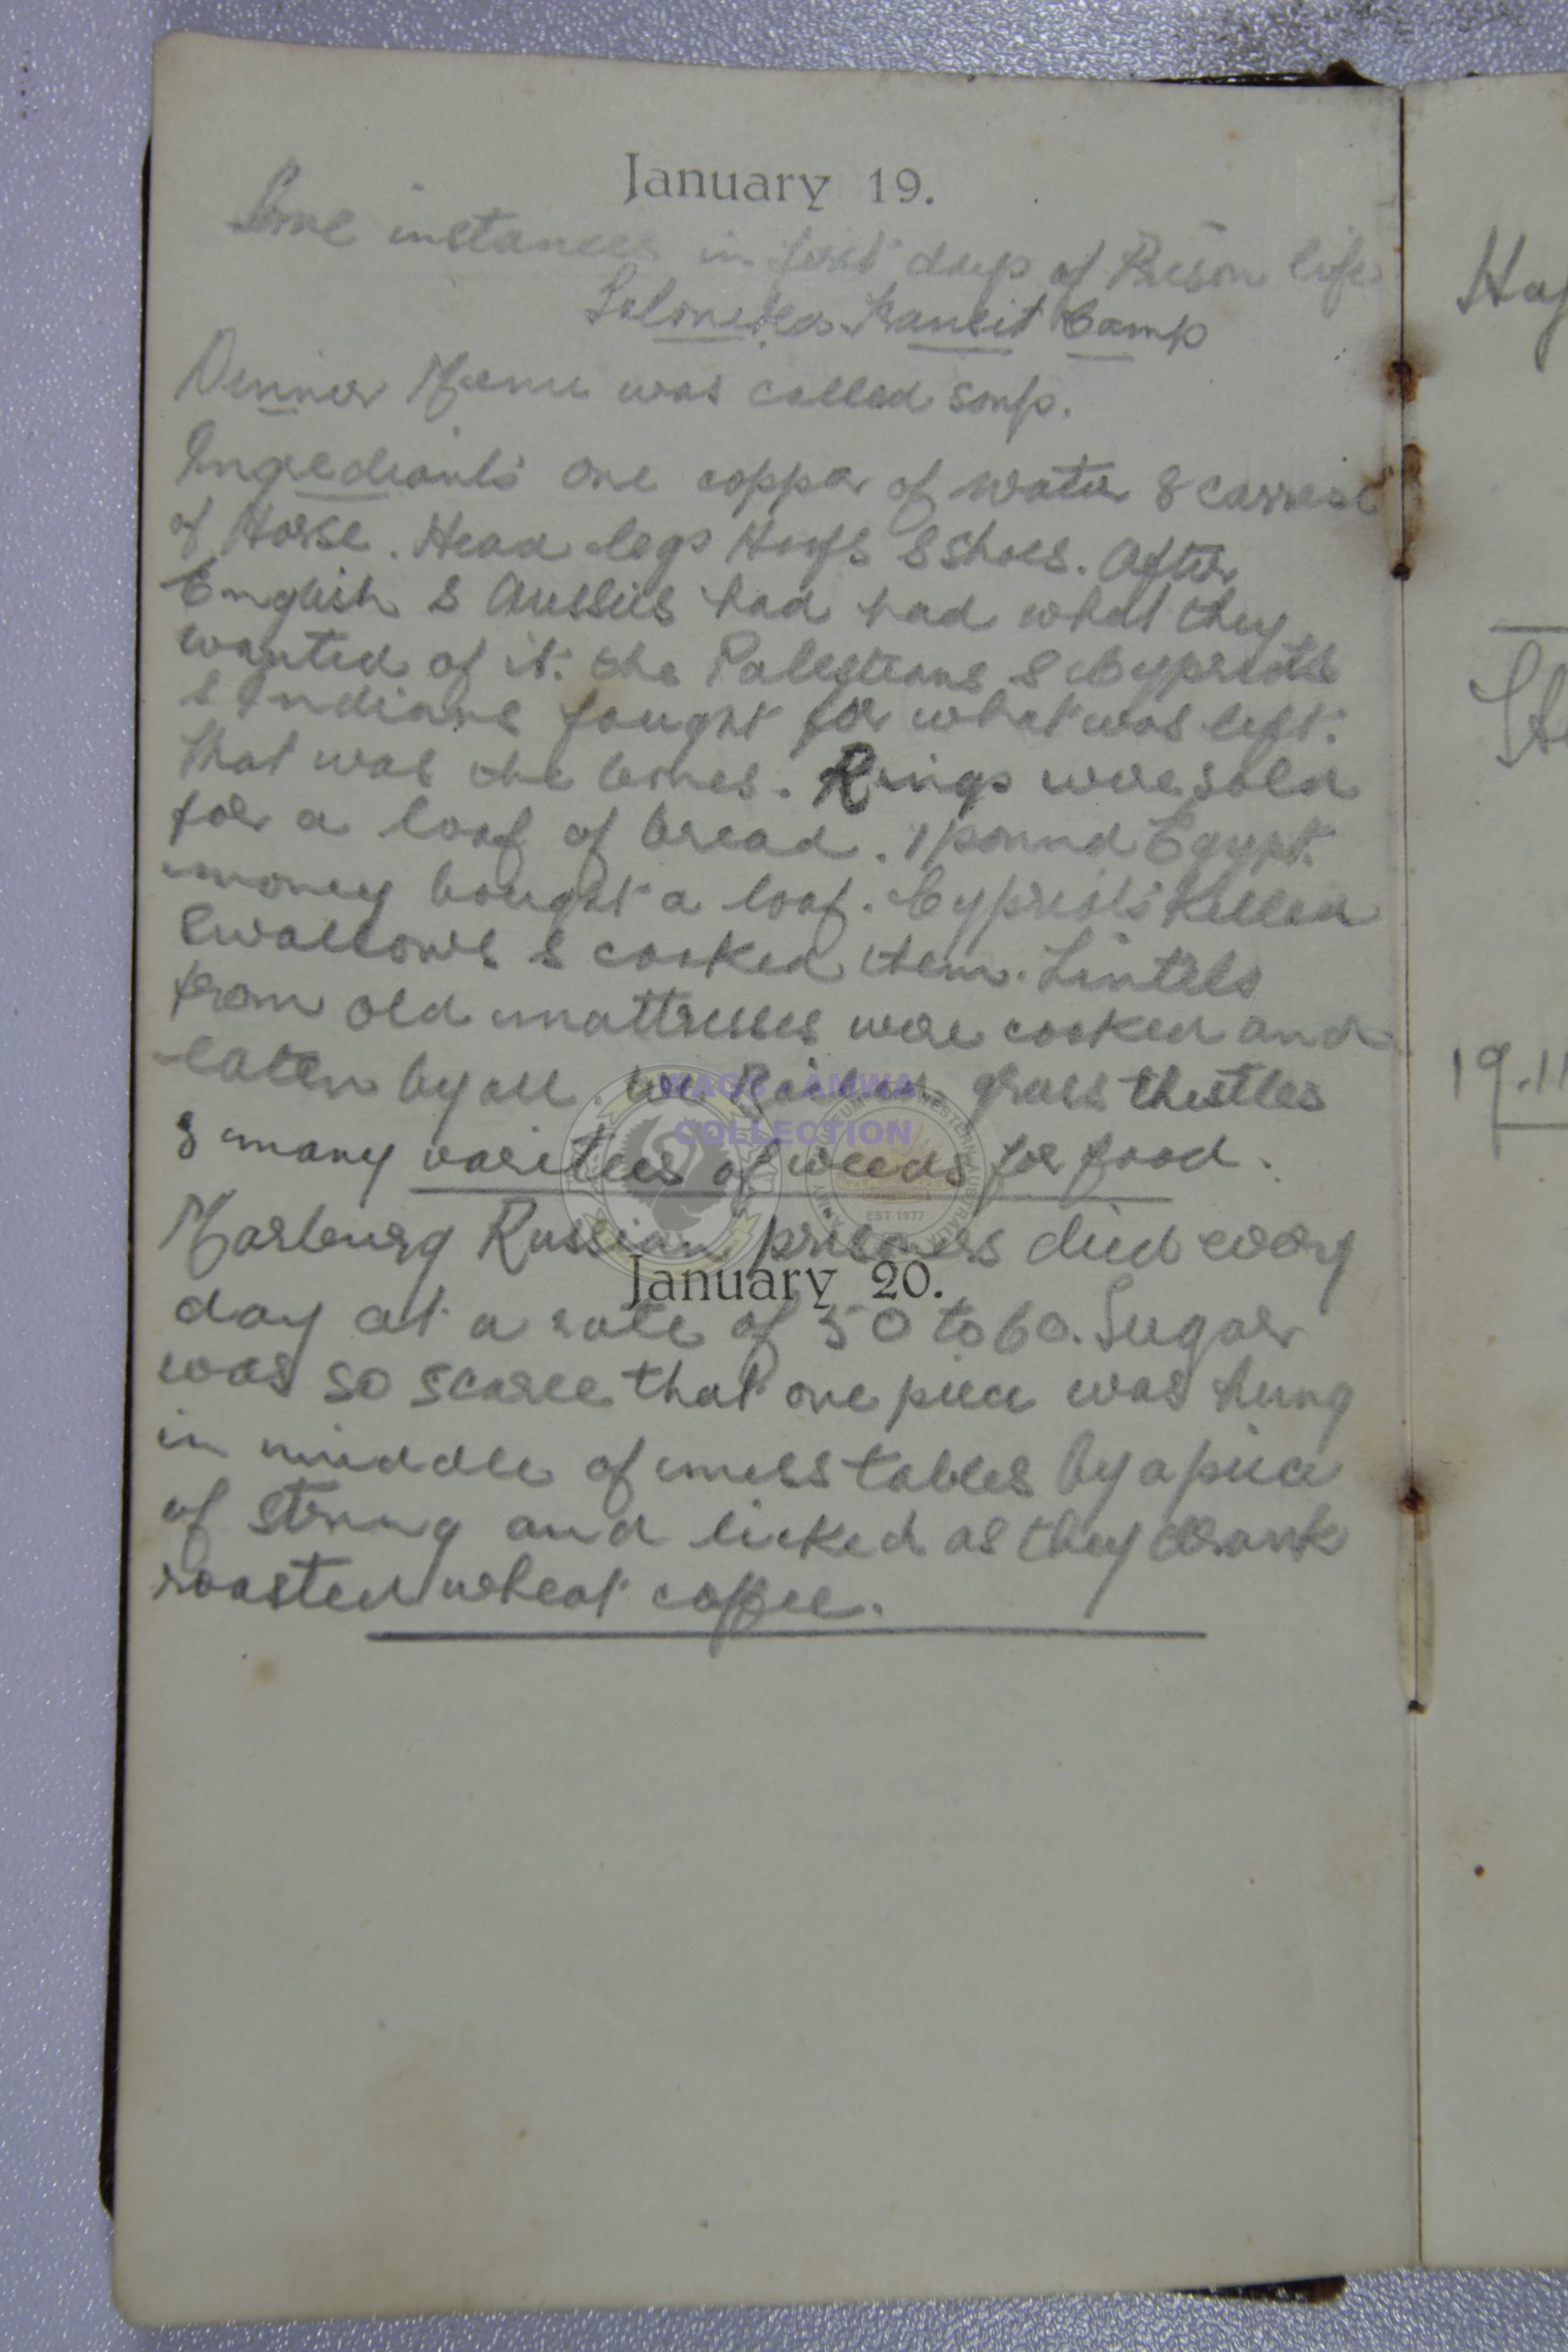 January 19.
Some instances in first days of Prison life
Selonika Transit Camp
Dinner Menu was called soup.
Ingrediants one copper of water & carcase
of Horse. Head legs Hoofs & Shoes. After
English & Aussies had had what they
wanted of it. the Palestians & Cypriots
& Indians fought for what was left.
that was the bones. Rings were sold
for a loaf of bread. 1 pound Egypt.
money bought a loaf. Cypriots killed
swallows & cooked them. Lintels
from old mattresses were cooked and
eaten by all. We Raided grass thistles
& many varities of weeds for food.
Marburg Russian prisoners died every
January 20.
day at a rate of 50 to 60. Sugar
was so scarce that one piece was hung
in middle of mess tables by a piece
of string and licked as they drank
roasted wheat coffee.
WAGS AMWA
COLLECTION
EST 1977
19.11